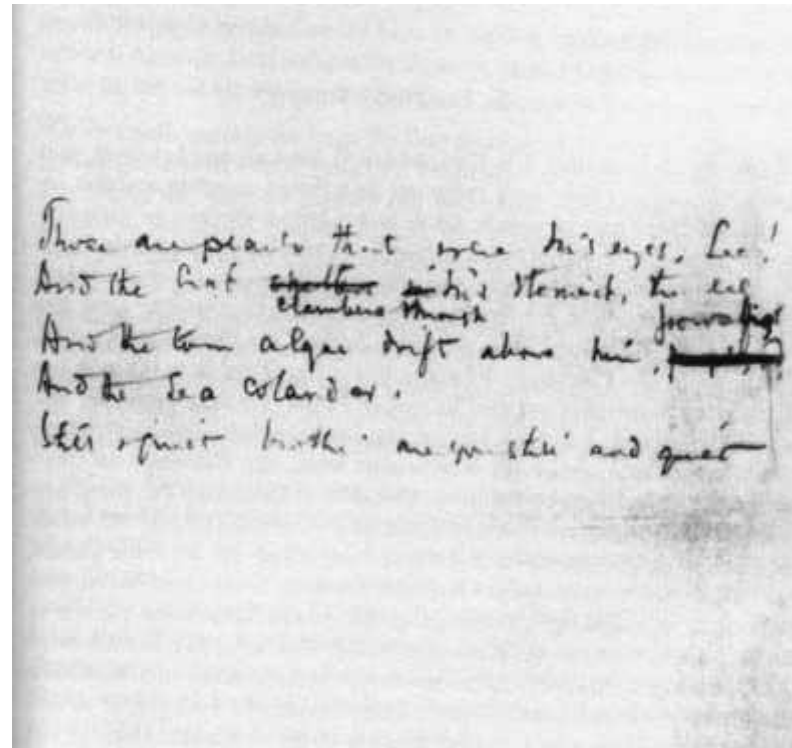 Those are pearls that were his eyes. See!
And the crab his stomach, the eel
clambers through grows big
And the torn algae drift above him,
And the sea colander.
Still quiet brother are you still and quiet